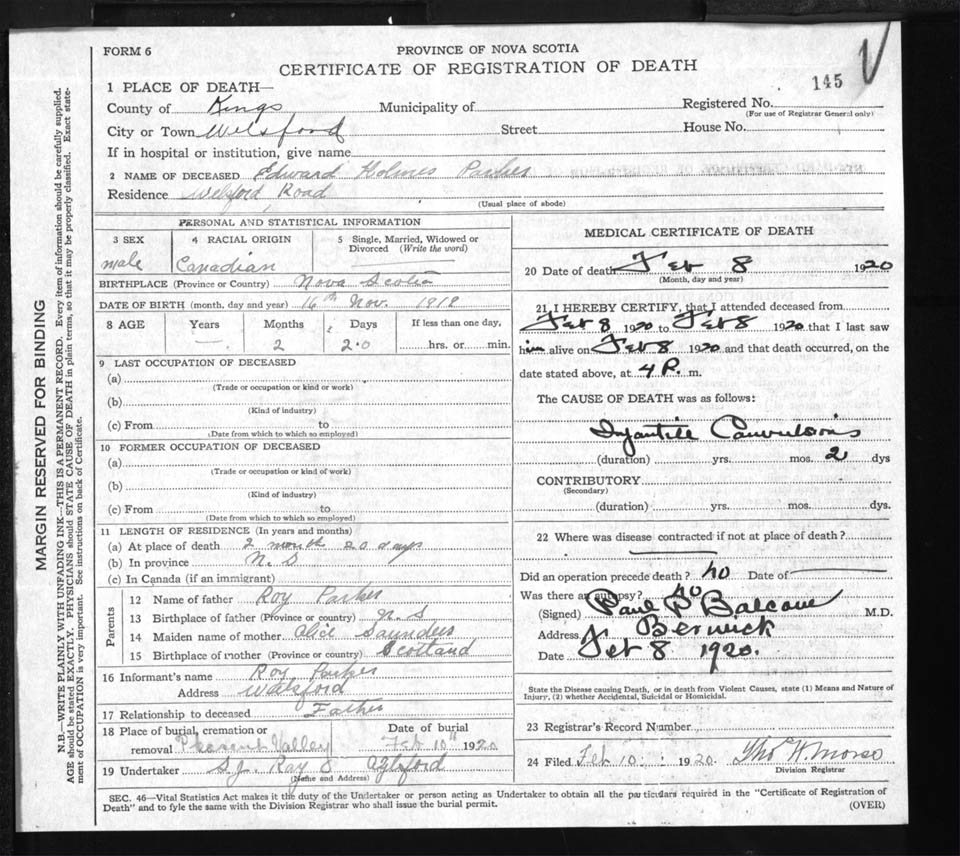 FORM 6
PROVINCE OF NOVA SCOTIA
CERTIFICATE OF REGISTRATION OF DEATH
145
1 PLACE OF DEATH—
County of Kings Municipality of Registered No.
(For use of Registrar General only)
City or Town Welsford Street House No.
If in hospital or institution, give name
2 NAME OF DECEASED Edward Holmes Parker
Residence Welsford Road
(Usual place of abode)
PERSONAL AND STATISTICAL INFORMATION
3 SEX 4 RACIAL ORIGIN 5 Single, Married, Widowed or Divorced (Write the word)
male Canadian
BIRTHPLACE (Province or Country) Nova Scotia
DATE OF BIRTH (month, day and year) 16th Nov. 1919
8 AGE Years Months Days If less than one day,
— 2 20 hrs. or min.
9 LAST OCCUPATION OF DECEASED
(a)
(Trade or occupation or kind or work)
(b)
(Kind of industry)
(c) From to
(Date from which to which so employed)
10 FORMER OCCUPATION OF DECEASED
(a)
(Trade or occupation or kind of work)
(b)
(Kind of industry)
(c) From to
(Date from which to which so employed)
11 LENGTH OF RESIDENCE (In years and months)
(a) At place of death 2 month 20 days
(b) In province N. S
(c) In Canada (if an immigrant)
Parents
12 Name of father Roy Parker
13 Birthplace of father (Province or country) N. S
14 Maiden name of mother Alice Saunders
15 Birthplace of mother (Province or country) Scotland
16 Informant's name Roy Parker
Address Welsford
17 Relationship to deceased Father
18 Place of burial, cremation or removal Pleasant Valley Date of burial Feb 10th 1920
19 Undertaker S. J. Ray Aylsford
(Name and Address)
MEDICAL CERTIFICATE OF DEATH
20 Date of death Feb 8 1920
(Month, day and year)
21 I HEREBY CERTIFY, that I attended deceased from
Feb 8 1920 to Feb 8 1920 that I last saw
him alive on Feb 8 1920 and that death occurred, on the
date stated above, at 4 P. m.
The CAUSE OF DEATH was as follows:
Infantile Convulsions
(duration) yrs. mos. 2 dys
CONTRIBUTORY
(Secondary)
(duration) yrs. mos. dys.
22 Where was disease contracted if not at place of death?
Did an operation precede death? NO Date of
Was there an autopsy? NO
(Signed) Paul P Balcom M.D.
Address Berwick
Date Feb 8 1920.
State the Disease causing Death, or in death from Violent Causes, state (1) Means and Nature of
Injury, (2) whether Accidental, Suicidal or Homicidal.
23 Registrar's Record Number
24 Filed Feb 10 1920 Thos W. Morse
Division Registrar
SEC. 46—Vital Statistics Act makes it the duty of the Undertaker or person acting as Undertaker to obtain all the particulars required in the "Certificate of Registration of
Death" and to fyle the same with the Division Registrar who shall issue the burial permit. (OVER)
MARGIN RESERVED FOR BINDING
N.B.—WRITE PLAINLY WITH UNFADING INK—THIS IS A PERMANENT RECORD. Every item of information should be carefully supplied.
AGE should be stated EXACTLY. PHYSICIANS should STATE CAUSE OF DEATH in plain terms, so that it may be properly classified. Exact state-
ment of OCCUPATION is very important. See instructions on back of Certificate.